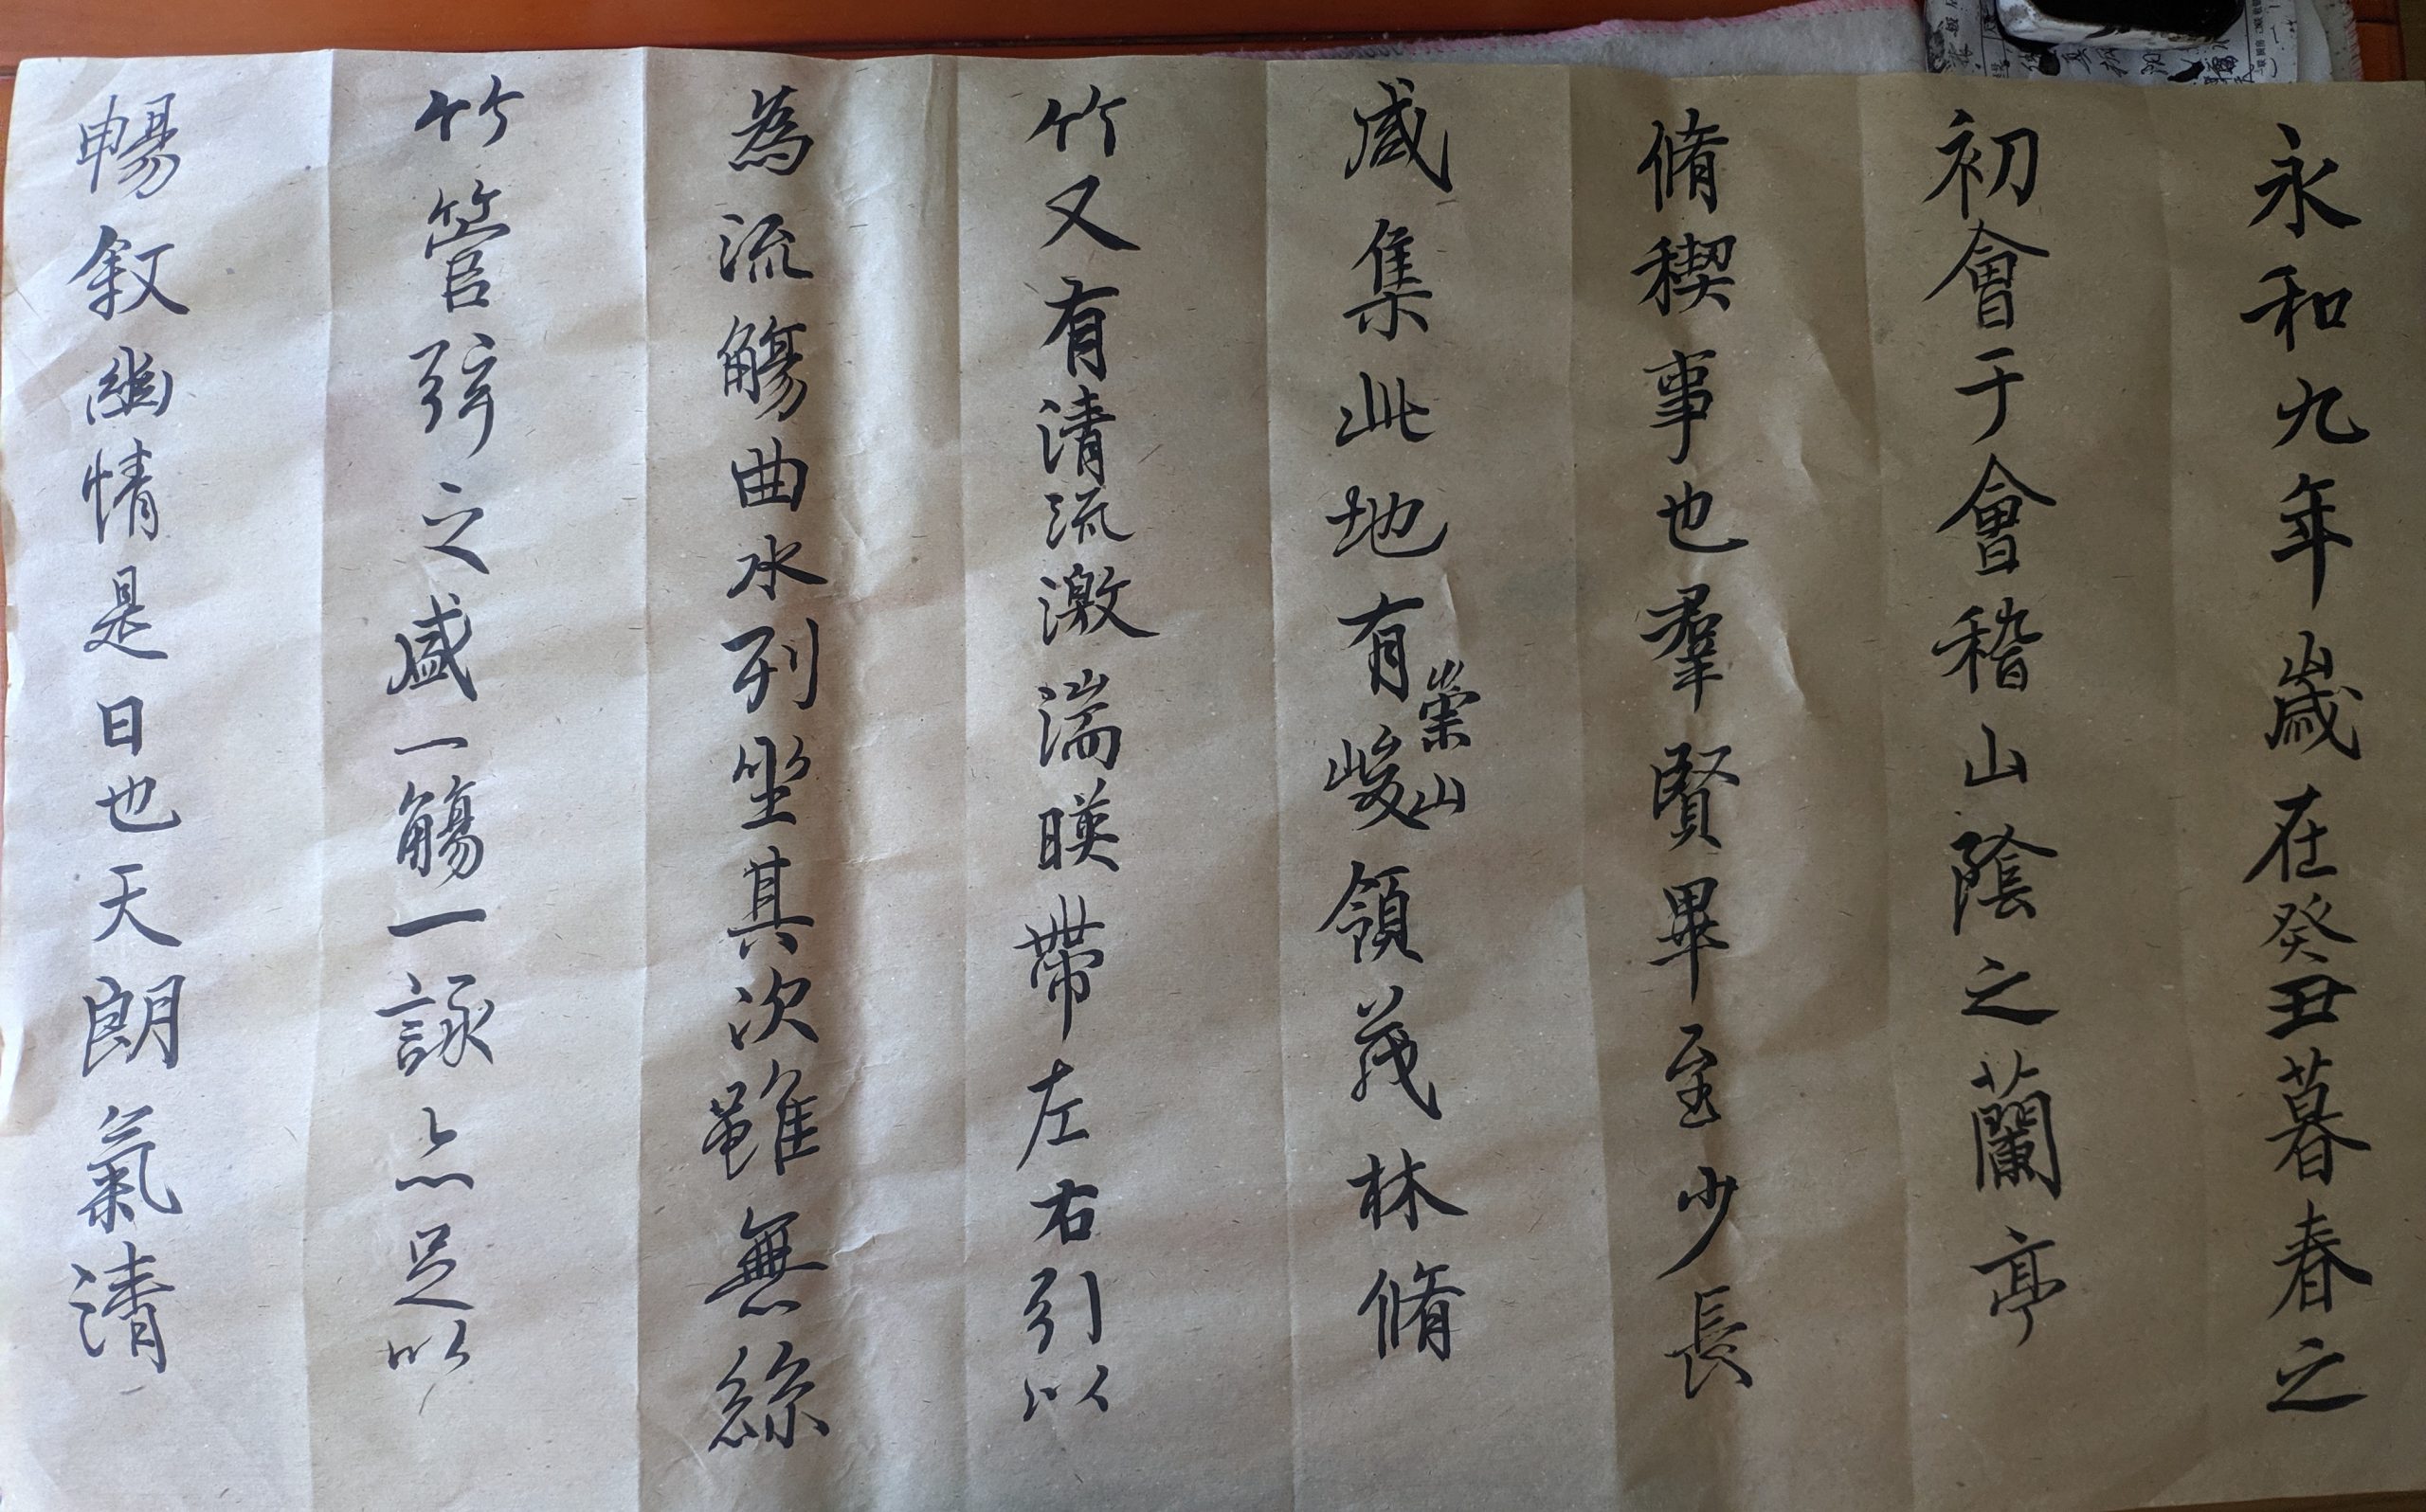 永和九年歲在癸丑暮春之
初會于會稽山陰之蘭亭
脩稧事也羣賢畢至少長
咸集此地有崇山峻領茂林脩
竹又有清流激湍暎帶左右引以
為流觴曲水列坐其次雖無絲
竹管弦之盛一觴一詠亦足以
暢敘幽情是日也天朗氣清